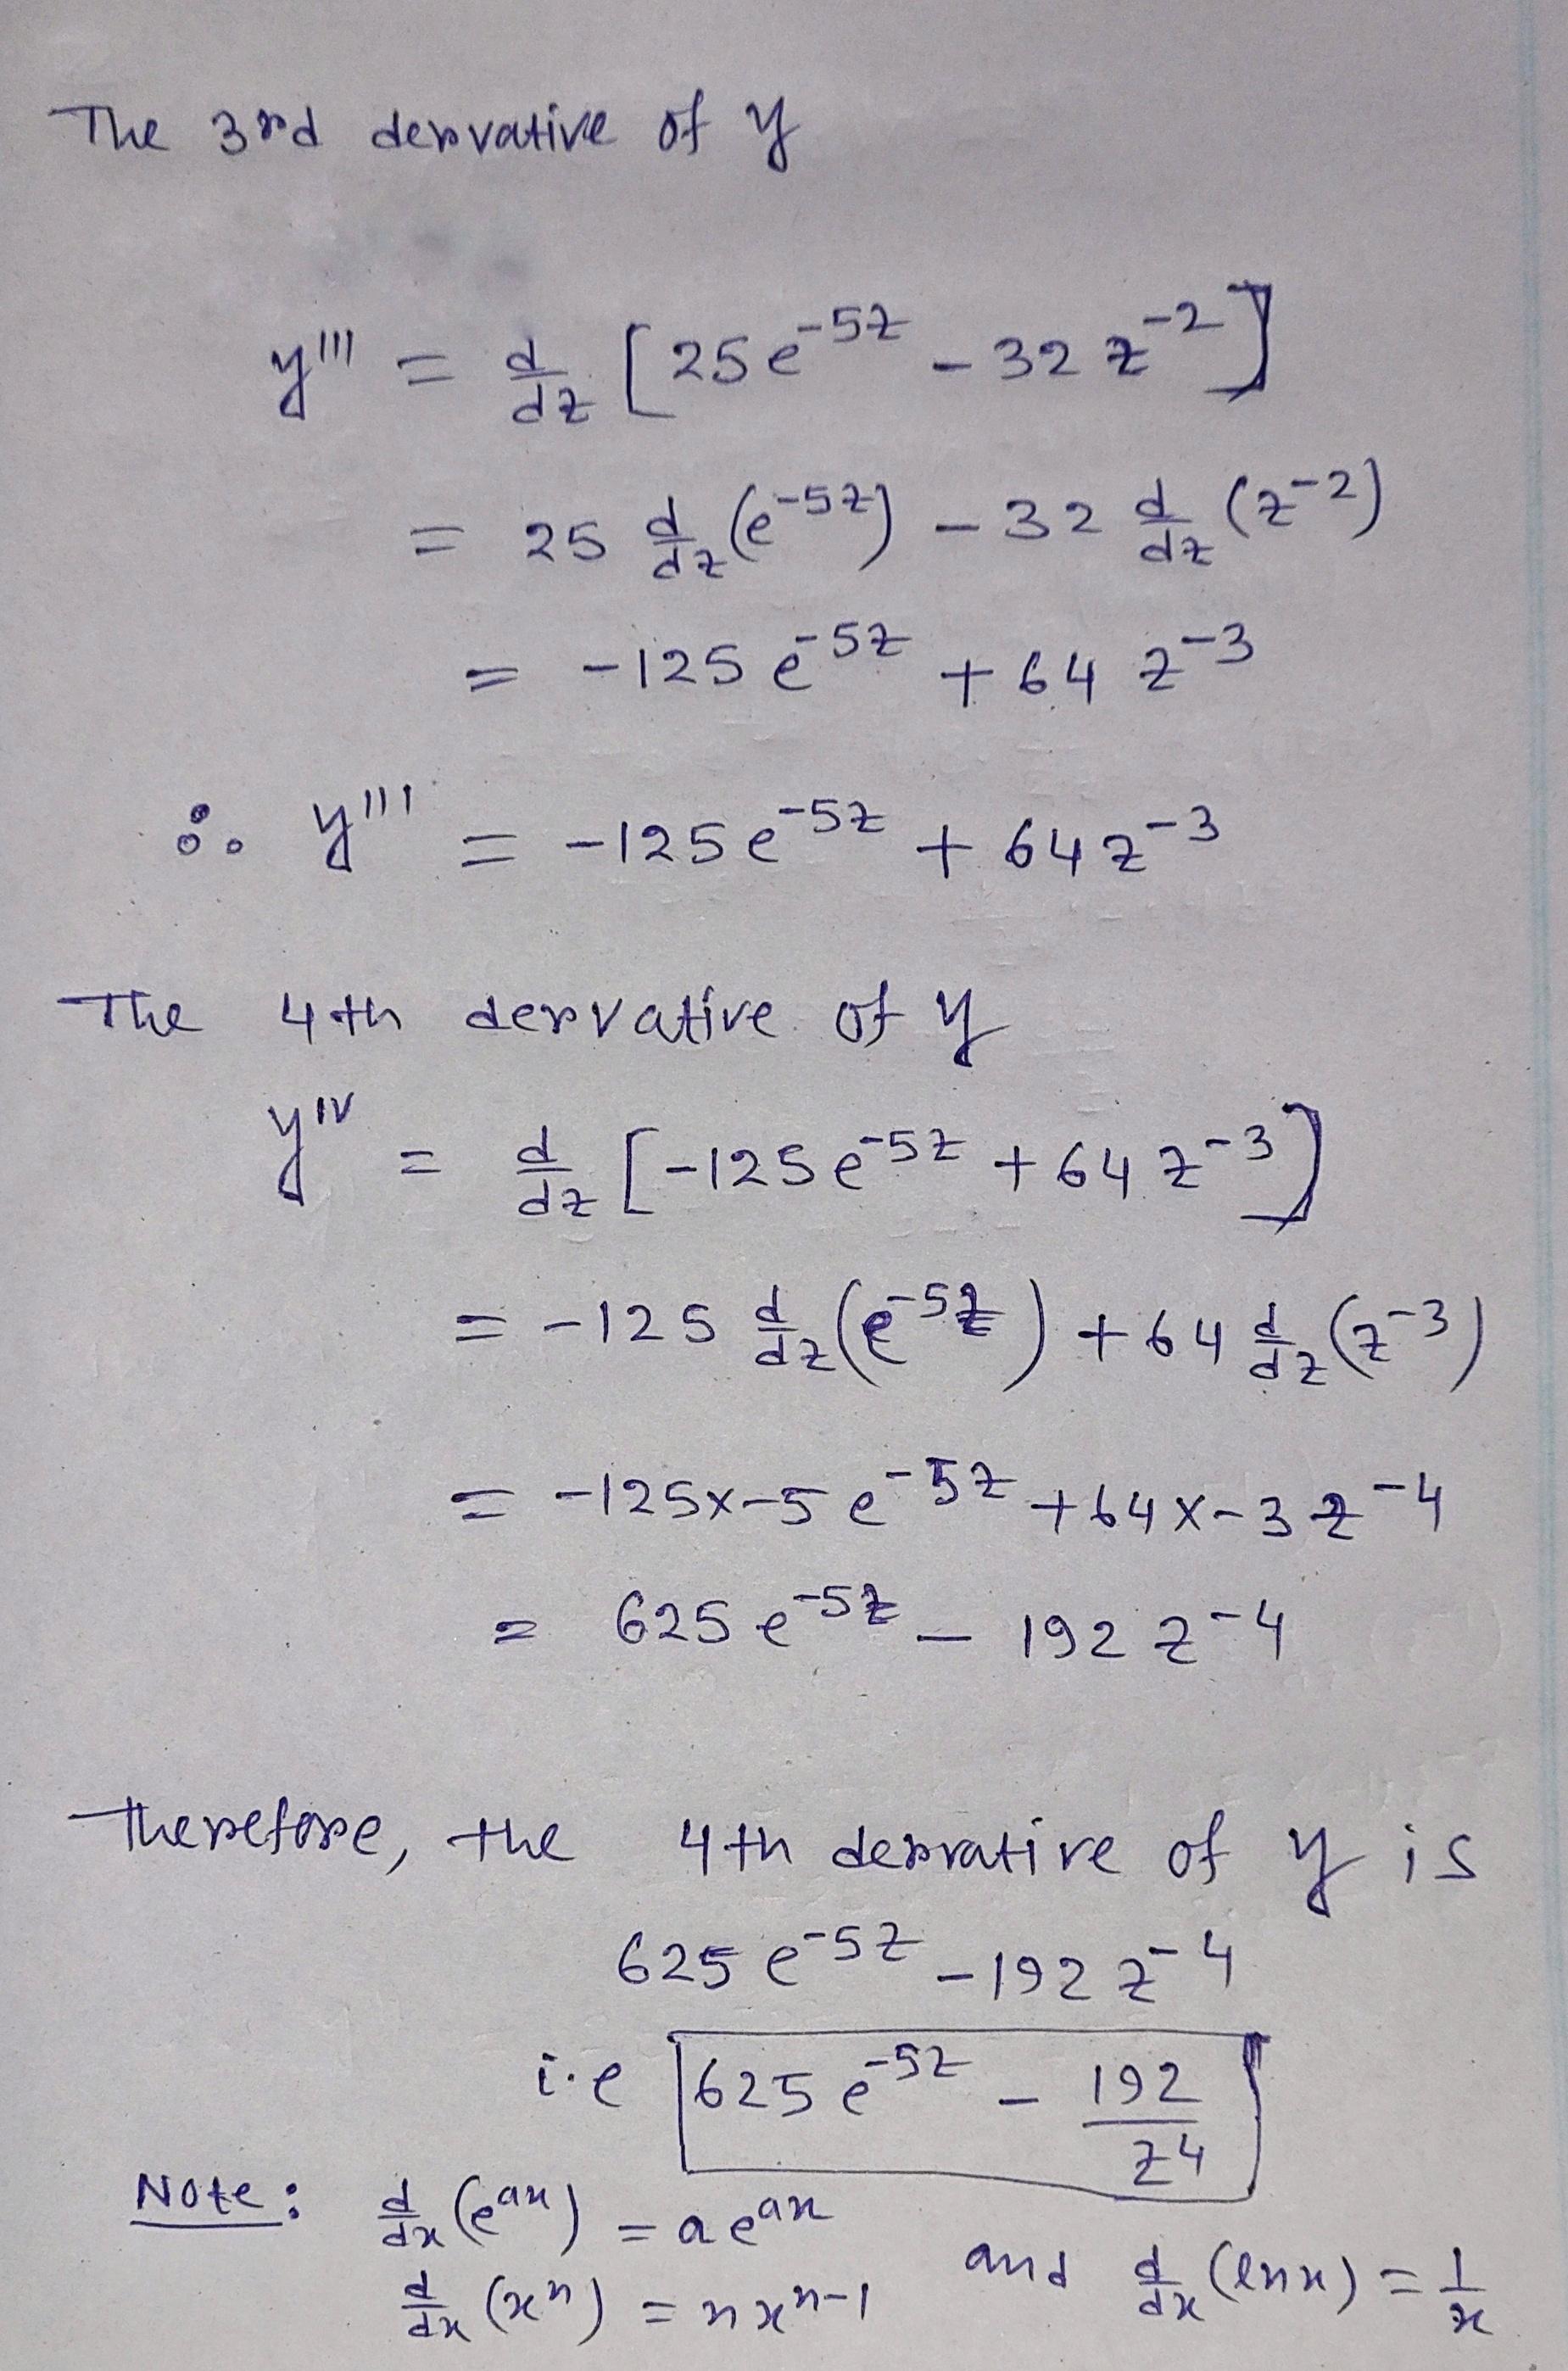 The 3rd dervative of y
y''' = d/dz [25e^-5z - 32 z^-2]
= 25 d/dz (e^-5z) - 32 d/dz (z^-2)
= -125 e^-5z + 64 z^-3
∴ y''' = -125e^-5z + 64z^-3
The 4th dervative of y
y^IV = d/dz [-125e^-5z + 64z^-3]
= -125 d/dz (e^-5z) + 64 d/dz (z^-3)
= -125x-5 e^-5z + 64x-3 z^-4
= 625 e^-5z - 192 z^-4
Therefore, the 4th dervative of y is
625 e^-5z - 192 z^-4
i.e 625 e^-5z - 192/z4
Note: d/dx (e^ax) = a e^ax
d/dx (x^n) = n x^n-1 and d/dx (lnx) = 1/x